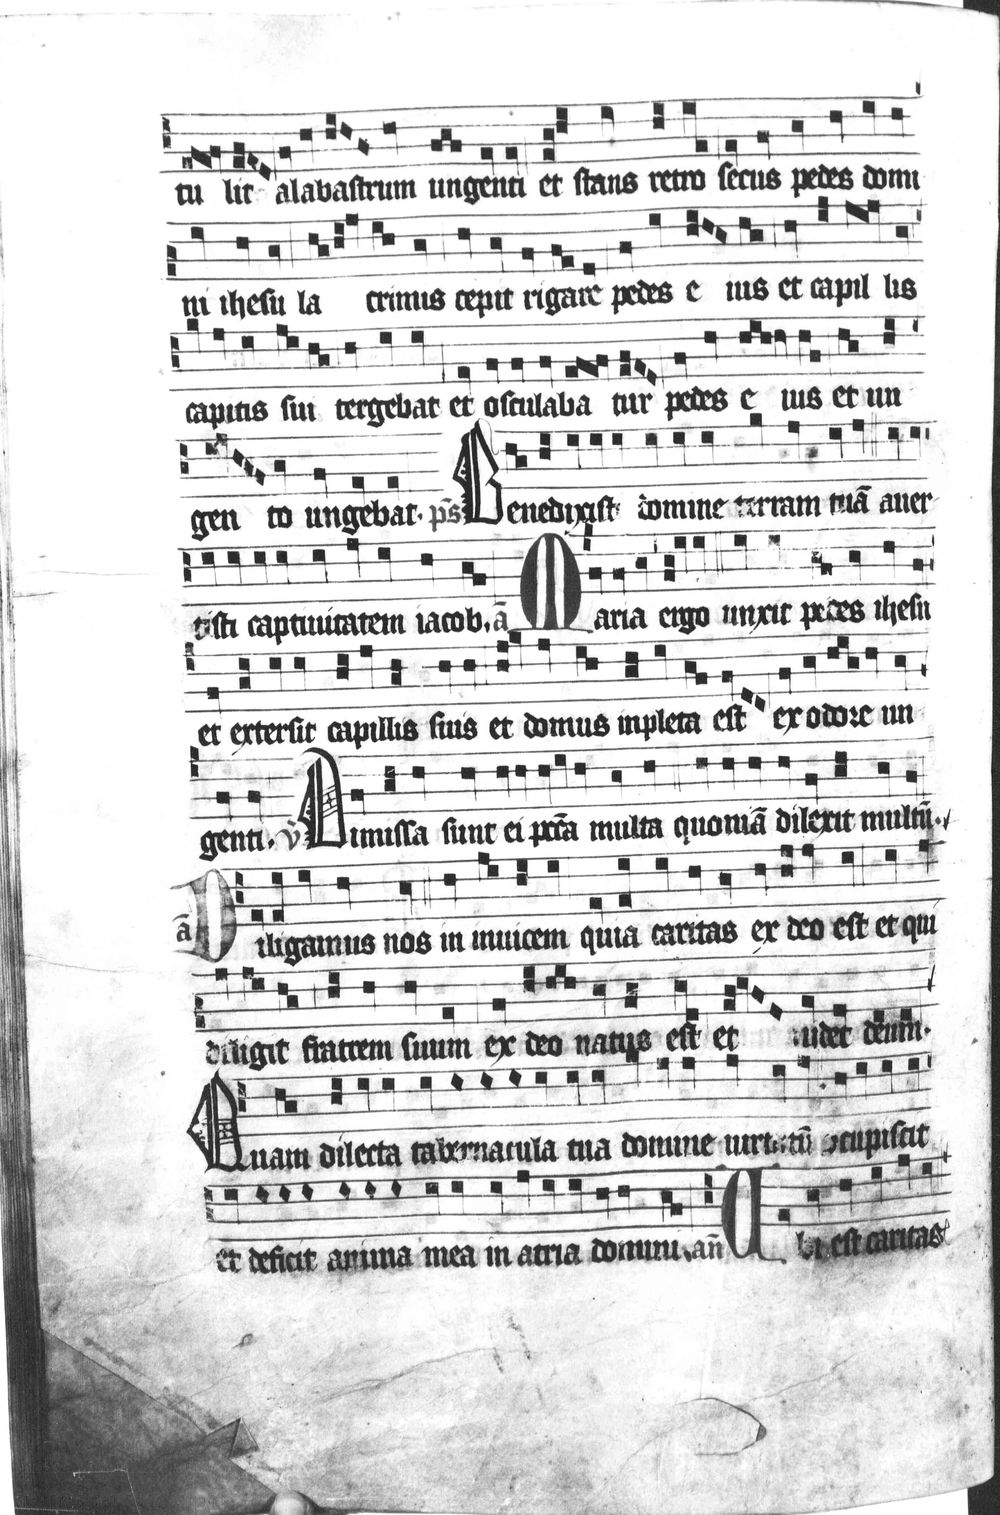 tu lit alabastrum ungenti et stans retro secus pedes domi
ni ihesu la crimis cepit rigare pedes e ius et capil lis
capitis sui tergebat et osculaba tur pedes e ius et un
gen to ungebat. p̄s Benedixisti domine terram tuā auer
tisti captiuitatem iacob. ā Maria ergo unxit pedes ihesu
et extersit capillis suis et domus inpleta est ex odore un
genti. v̄ Dimissa sunt ei pctā multa quoniā dilexit multū.
ā Diligamus nos in inuicem quia caritas ex deo est et qui
diligit fratrem suum ex deo natus est et uidet deum.
Quam dilecta tabernacula tua domine uirtutū cupiscit
et deficit anima mea in atria domini. an̄ Ubi est caritas